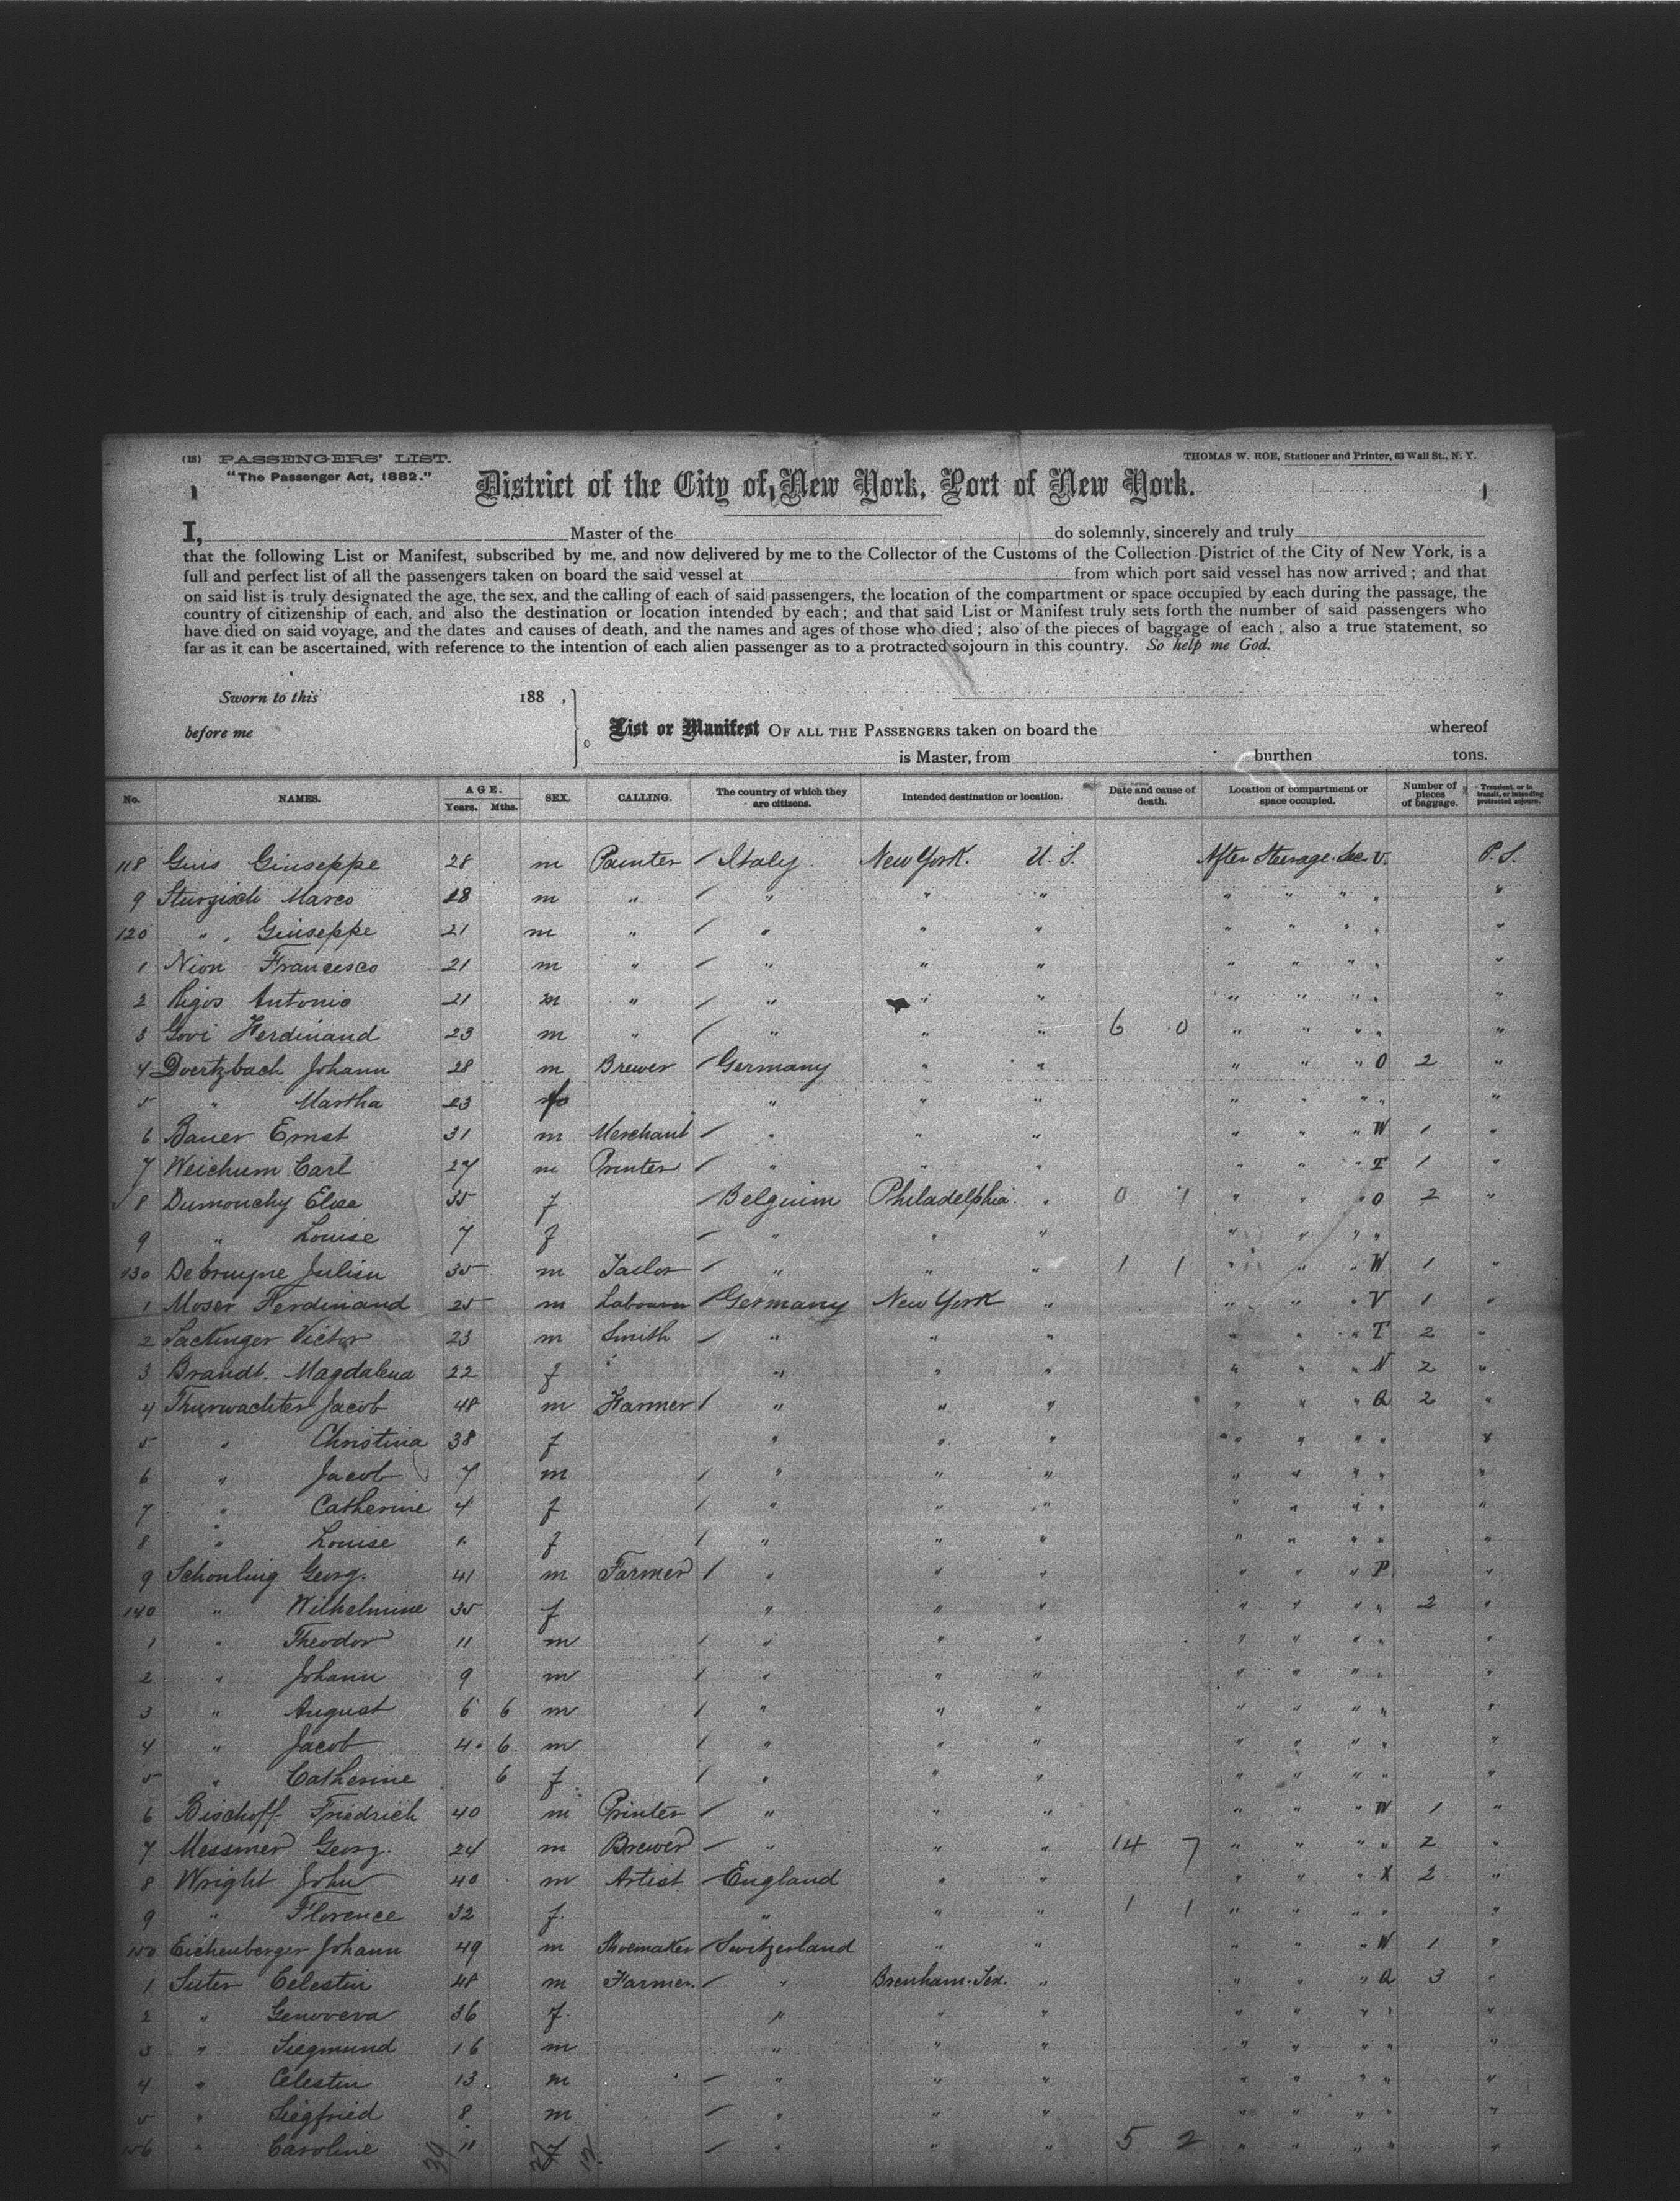 (18) PASSENGERS' LIST.
THOMAS W. ROE, Stationer and Printer, 63 Wall St., N. Y.
"The Passenger Act, 1882."
District of the City of New York, Port of New York.
I, Master of the do solemnly, sincerely and truly
that the following List or Manifest, subscribed by me, and now delivered by me to the Collector of the Customs of the Collection District of the City of New York, is a
full and perfect list of all the passengers taken on board the said vessel at from which port said vessel has now arrived; and that
on said list is truly designated the age, the sex, and the calling of each of said passengers, the location of the compartment or space occupied by each during the passage, the
country of citizenship of each, and also the destination or location intended by each; and that said List or Manifest truly sets forth the number of said passengers who
have died on said voyage, and the dates and causes of death, and the names and ages of those who died; also of the pieces of baggage of each; also a true statement, so
far as it can be ascertained, with reference to the intention of each alien passenger as to a protracted sojourn in this country. So help me God.
Sworn to this 188 ,
before me
List or Manifest OF ALL THE PASSENGERS taken on board the whereof
is Master, from burthen tons.
No. NAMES. AGE. Years. Mths. SEX. CALLING. The country of which they are citizens. Intended destination or location. Date and cause of death. Location of compartment or space occupied. Number of pieces of baggage. Transient, or in transit, or intending protracted sojourn.
118 Guis Giuseppe 28 m Painter / Italy New York. U. S. After Steerage. Sec. V. P. S.
9 Marco 28 m " / " " " " " " " "
120 " Giuseppe 21 m " / " " " " " " " "
1 Nion Francesco 21 m " / " " " " " " " "
2 Rigos Antonio 21 m " / " " " " " " " "
3 Govi Ferdinand 23 m " / " " " 6 0 " " " " "
4 Doertzbach Johann 28 m Brewer / Germany " " " " " O 2 "
5 " Martha 23 f " " " " " " " "
6 Bauer Ernst 31 m Merchant / " " " " " " W 1 "
7 Weichum Carl 27 m Printer / " " " " " " T 1 "
8 Dumouchy Elisa 35 f / Belgium Philadelphia " 0 1 " " " O 2 "
9 " Louise 7 f / " " " " " " "
130 Debruyne Julien 35 m Tailor / " " " 1 1 " " " W 1 "
1 Moser Ferdinand 25 m Labourer / Germany New York " " " " V 1 "
2 Sackinger Victor 23 m Smith / " " " " " " T 2 "
3 Brandt. Magdalena 22 f " " " " " " N 2 "
4 Thurwachter Jacob 48 m Farmer / " " " " " " Q 2 "
5 " Christina 38 f " " " " " " " "
6 " Jacob 7 m / " " " " " " " "
7 " Catherine 4 f / " " " " " " " "
8 " Louise f / " " " " " " " "
9 Schonling Georg. 41 m Farmer / " " " " " " P "
140 " Wilhelmine 35 f " " " " " " " 2 "
1 " Theodor 11 m / " " " " " " " "
2 " Johann 9 m / " " " " " " " "
3 " August 6 6 m / " " " " " " " "
4 " Jacob 4 6 m / " " " " " " " "
5 " Catherine 6 f / " " " " " " " "
6 Bischoff Friedrich 40 m Printer / " " " " " " W 1 "
7 Messmer Georg. 24 m Brewer / " " " 14 7 " " " " 2 "
8 Wright John 40 m Artist / England " " " " " X 2 "
9 " Florence 32 f. " " " 1 1 " " " " "
150 Eichenberger Johann 49 m Shoemaker / Switzerland " " " " " W 1 "
1 Suter Celestin 48 m Farmer. / " Brenham. Tex. " " " " Q 3 "
2 " Genoveva 36 f. " " " " " " " "
3 " Siegmund 16 m " " " " " " " "
4 " Celestin 13 m / " " " " " " " "
5 " Siegfried 8 m / " " " " " " " "
156 " Caroline 11 f / " " " 5 2 " " " " "